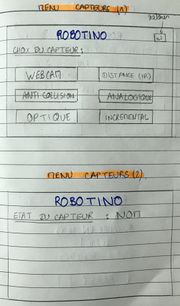 MENU CAPTEURS (1)
ROBOTINO
CHOIX DU CAPTEUR :
WEBCAM
DISTANCE (IR)
ANTI COLLISION
ANALOGIQUE
OPTIQUE
INCREMENTAL
MENU CAPTEURS (2)
ROBOTINO
ETAT DU CAPTEUR : NOM